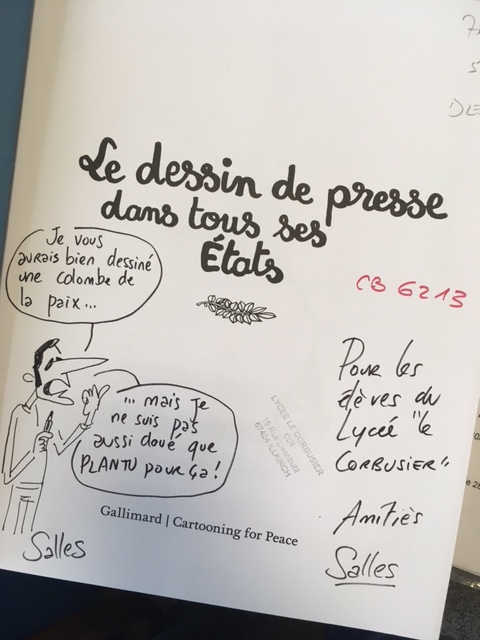 Le dessin de presse
dans tous ses
États
Je vous
aurais bien dessiné
une colombe de
la paix...
... mais je
ne suis pas
aussi doué que
PLANTU pour ça !
Salles
CB 6213
Pour les
élèves du
Lycée "le
CORBUSIER"
Amitiés
Salles
LYCEE LE CORBUSIER
CDI
15 Rue Lixenbuhl
67404 ILLKIRCH
Gallimard | Cartooning for Peace
DE